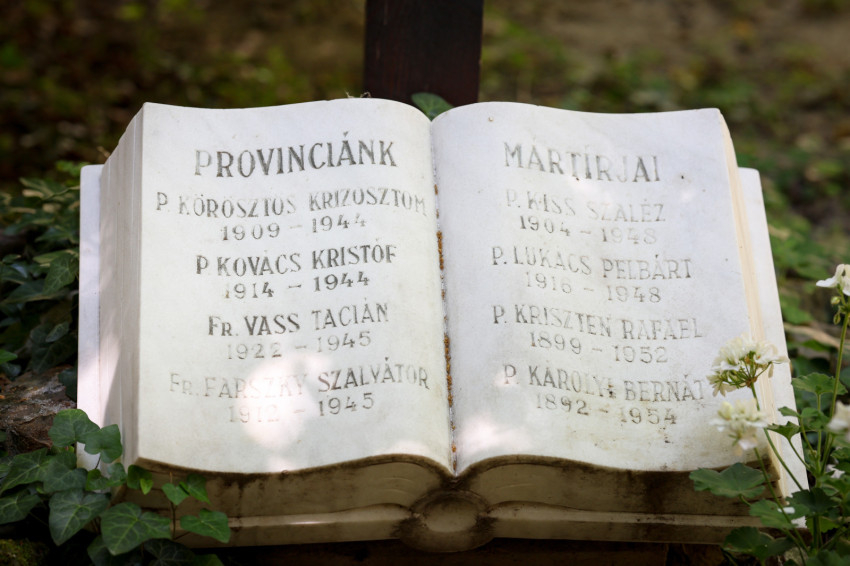 PROVINCIÁNK
P. KÖRÖSZTOS KRIZOSZTOM
1909 - 1944
P. KOVÁCS KRISTÓF
1914 - 1944
FR. VASS TACIÁN
1922 - 1945
FR. FARSZKY SZALVÁTOR
1912 - 1945
MÁRTÍRJAI
P. KISS SZALÉZ
1904 - 1948
P. LUKÁCS PELBÁRT
1916 - 1948
P. KRISZTEN RAFAEL
1899 - 1952
P. KÁROLYI BERNÁT
1892 - 1954